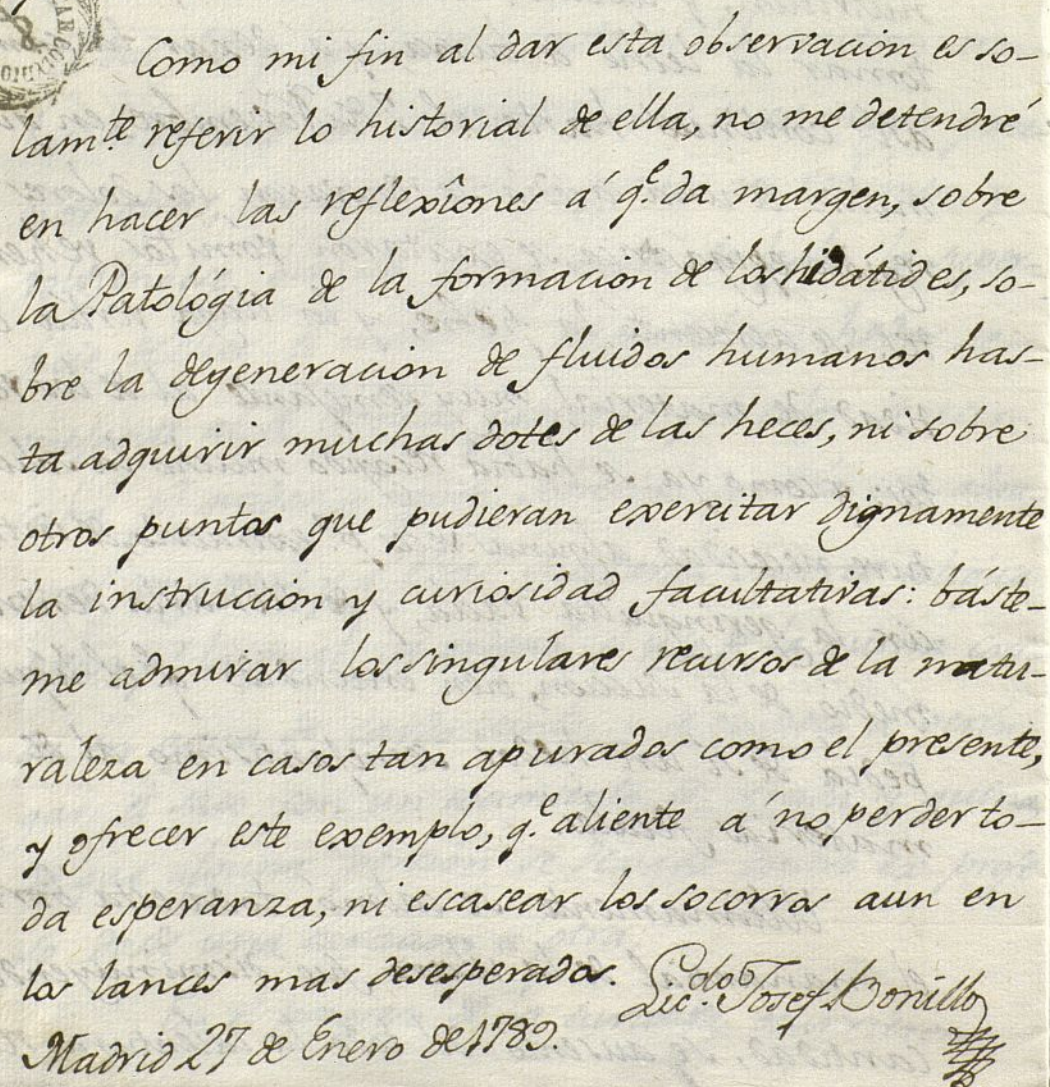 Como mi fin al dar esta observacion es so-
lam.te referir lo historial de ella, no me detendré
en hacer las reflexîones á q.e da margen, sobre
la Patológia de la formacion de los hidátides, so-
bre la degeneracion de fluidos humanos has-
ta adquirir muchas dotes de las heces, ni sobre
otros puntos que pudieran exercitar dignamente
la instruccion y curiosidad facultativas: báste-
me admirar los singulares recursos de la natu-
raleza en casos tan apurados como el presente,
y ofrecer este exemplo, q.e aliente á no perder to-
da esperanza, ni escasear los socorros aun en
los lances mas desesperados.
Licdo. Josef Bonillo
Madrid 27 de Enero de 1789.